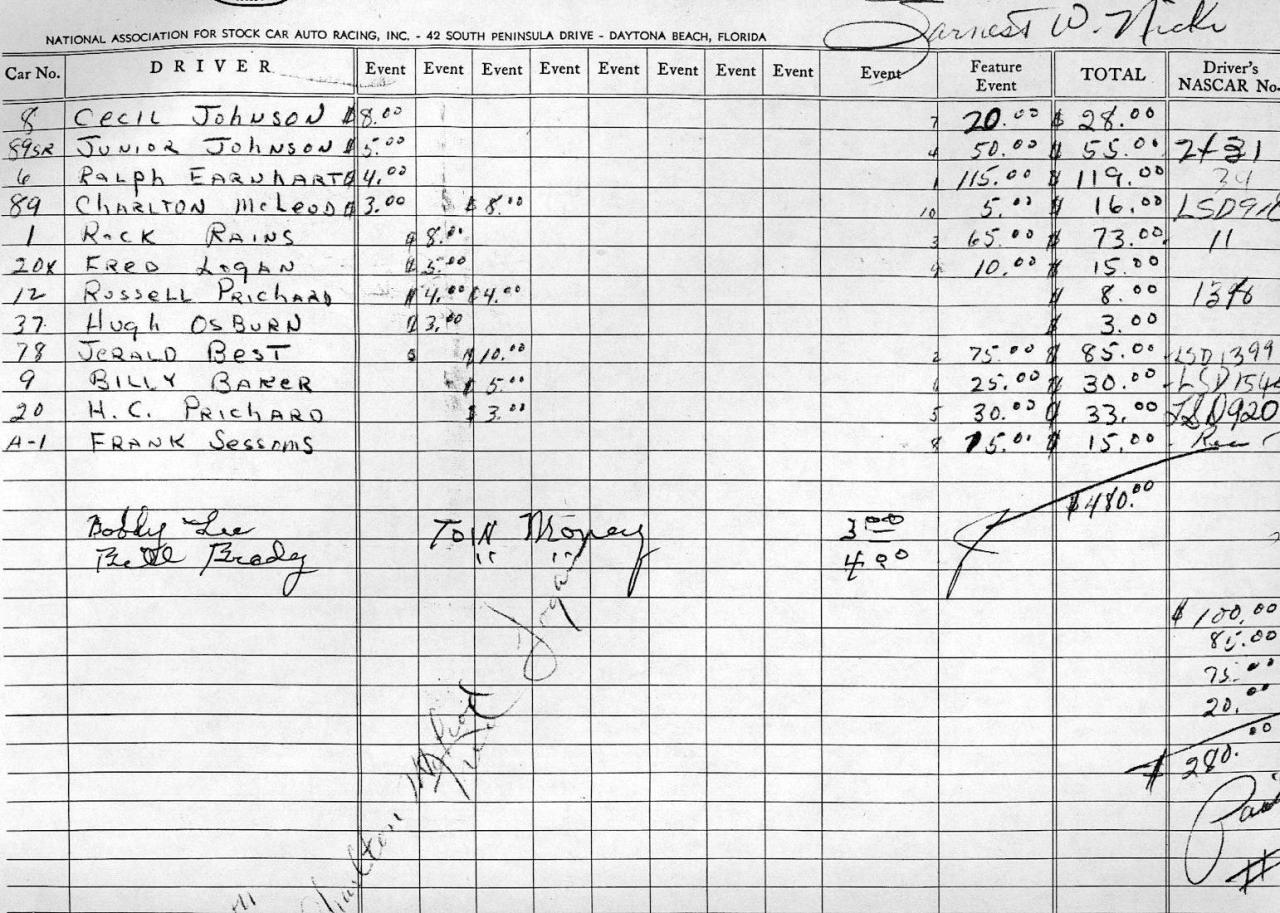 NATIONAL ASSOCIATION FOR STOCK CAR AUTO RACING, INC. - 42 SOUTH PENINSULA DRIVE - DAYTONA BEACH, FLORIDA
Earnest W. Nicks
Car No. DRIVER Event Event Event Event Event Event Event Event Event Feature Event TOTAL Driver's NASCAR No.
8 CECIL JOHNSON $8.00 7 20.00 $ 28.00
89SR JUNIOR JOHNSON $5.00 4 50.00 $ 55.00
6 RALPH EARNHART $4.00 1 115.00 $ 119.00 34
89 CHARLTON McLEOD $3.00 $8.00 10 5.00 $ 16.00
1 ROCK RAINS $8.00 3 65.00 $ 73.00 11
20X FRED LOGAN $5.00 9 10.00 $ 15.00
12 RUSSELL PRICHARD $4.00 $4.00 $ 8.00
37 Hugh OSBURN $3.00 $ 3.00
78 JERALD BEST $10.00 2 75.00 $ 85.00 LSD1399
9 BILLY BAKER $5.00 25.00 $ 30.00
20 H.C. PRICHARD $3.00 5 30.00 $ 33.00 LSD920
A-1 FRANK Sessoms 8 15.00 $ 15.00
$480.00
Bobby Lee Tow Money 3.00
Brady " " 4.00
$ 100.00
85.00
75.00
20.00
$ 280.00